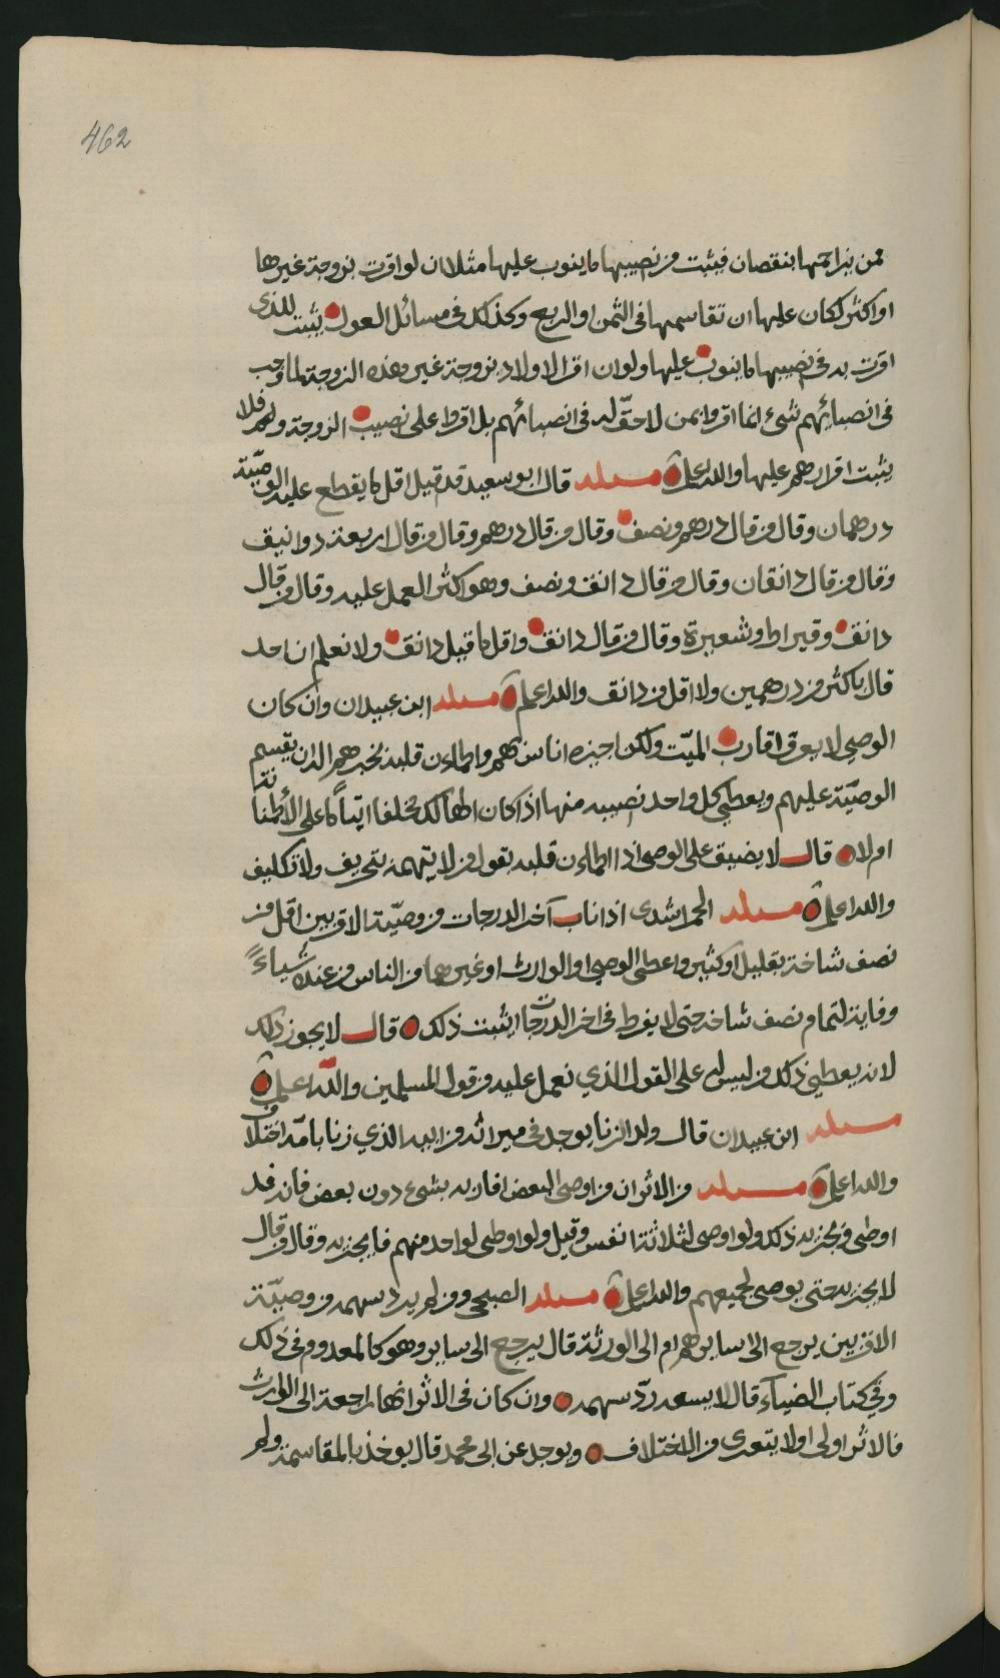 462
فمن يزاحمها بنقصان فيثبت من نصيبها ما ينوب عليها مثلا ان لو اقرت بزوجة غيرها
او اكثر لكان عليها ان تقاسمها فى الثمن او الربع وكذلك فى مسائل العول يثبت للذى
اقرت به فى نصيبها ما ينوب عليها ولو ان اقر الاولاد بزوجة غير هذه الزوجة لما وجب
فى انصبائهم شئ انما اقروا بمن لا حقّ له فى انصبائهم بل اقروا على نصيب الزوجة ولهم فلا
يثبت اقرارهم عليها والله اعلم مسئلة قال ابو سعيد قد قيل اقل ما يقطع عليه الوصيّة
درهمان وقال من قال درهم ونصف وقال من قال درهم وقال من قال اربعة دوانيق
وقال من قال دانقان وقال من قال دانق ونصف وهو اكثر العمل عليه وقال من قال
دانق وقيراط وشعيرة وقال من قال دانق واقل ما قيل دانق ولا نعلم ان احد
قال باكثر من درهمين ولا اقل من دانق والله اعلم مسئلة ابن عبيدان وان كان
الوصي لا يعرف اقارب الميّت ولكن اخبره اناس بهم واطمان قلبه بخبرهم اله ان يقسم
الوصيّة عليهم ويعطي كل واحد نصيبه منها اذا كان الهالك مخلفا ايتاما على الأطمنانة
ام لا قال لا يضيق على الوصي اذا اطمان قلبه بقول من لا يتهمه بتحريف ولا تكليف
والله اعلم مسئلة الحمراشدى اذا ناب آخر الدرجات من وصيّة الاقربين اقل من
نصف شاخة بقليل او كثير واعطى الوصي او الوارث او غيرهما من الناس من عنده شياءً
وفاية لتمام نصف شاخة حتى لا يفرط فى اخر الدرجات ايثبت ذلك قال لا يجوز ذلك
لانه يعطي ذلك من ليس له على القول الذي نعمل عليه من قول المسلمين والله اعلم
مسئلة ابن عبيدان قال ولد الزنا يوجد فى ميراثه من ابيه الذي زنا بامّه اختلاف
والله اعلم مسئلة من الاثر ان من اوصى لبعض اقاربه بشيء دون بعض فانه قد
اوصى ويجزيه ذلك ولو اوصى لثلاثة انفس وقيل ولو اوصى لواحد منهم فانه يجزيه وقال من قال
لا يجزيه حتى يوصي لجميعهم والله اعلم مسئلة الصبحي ومن لم يرد سهمه من وصيّة
الاقربين يرجع الى سايرهم ام الى الورثة قال يرجع الى سايرهم وهو كالمعدوم فى ذلك
وفي كتاب الضيآء قال لا يسعه ردّ سهمه وان كان فى الاثر انها راجعة الى الوارث
فالاثر اولى اولا يتعرى من الاختلاف ويوجد عن ابى محمد قال يوخذ بالمقاسمة ولم